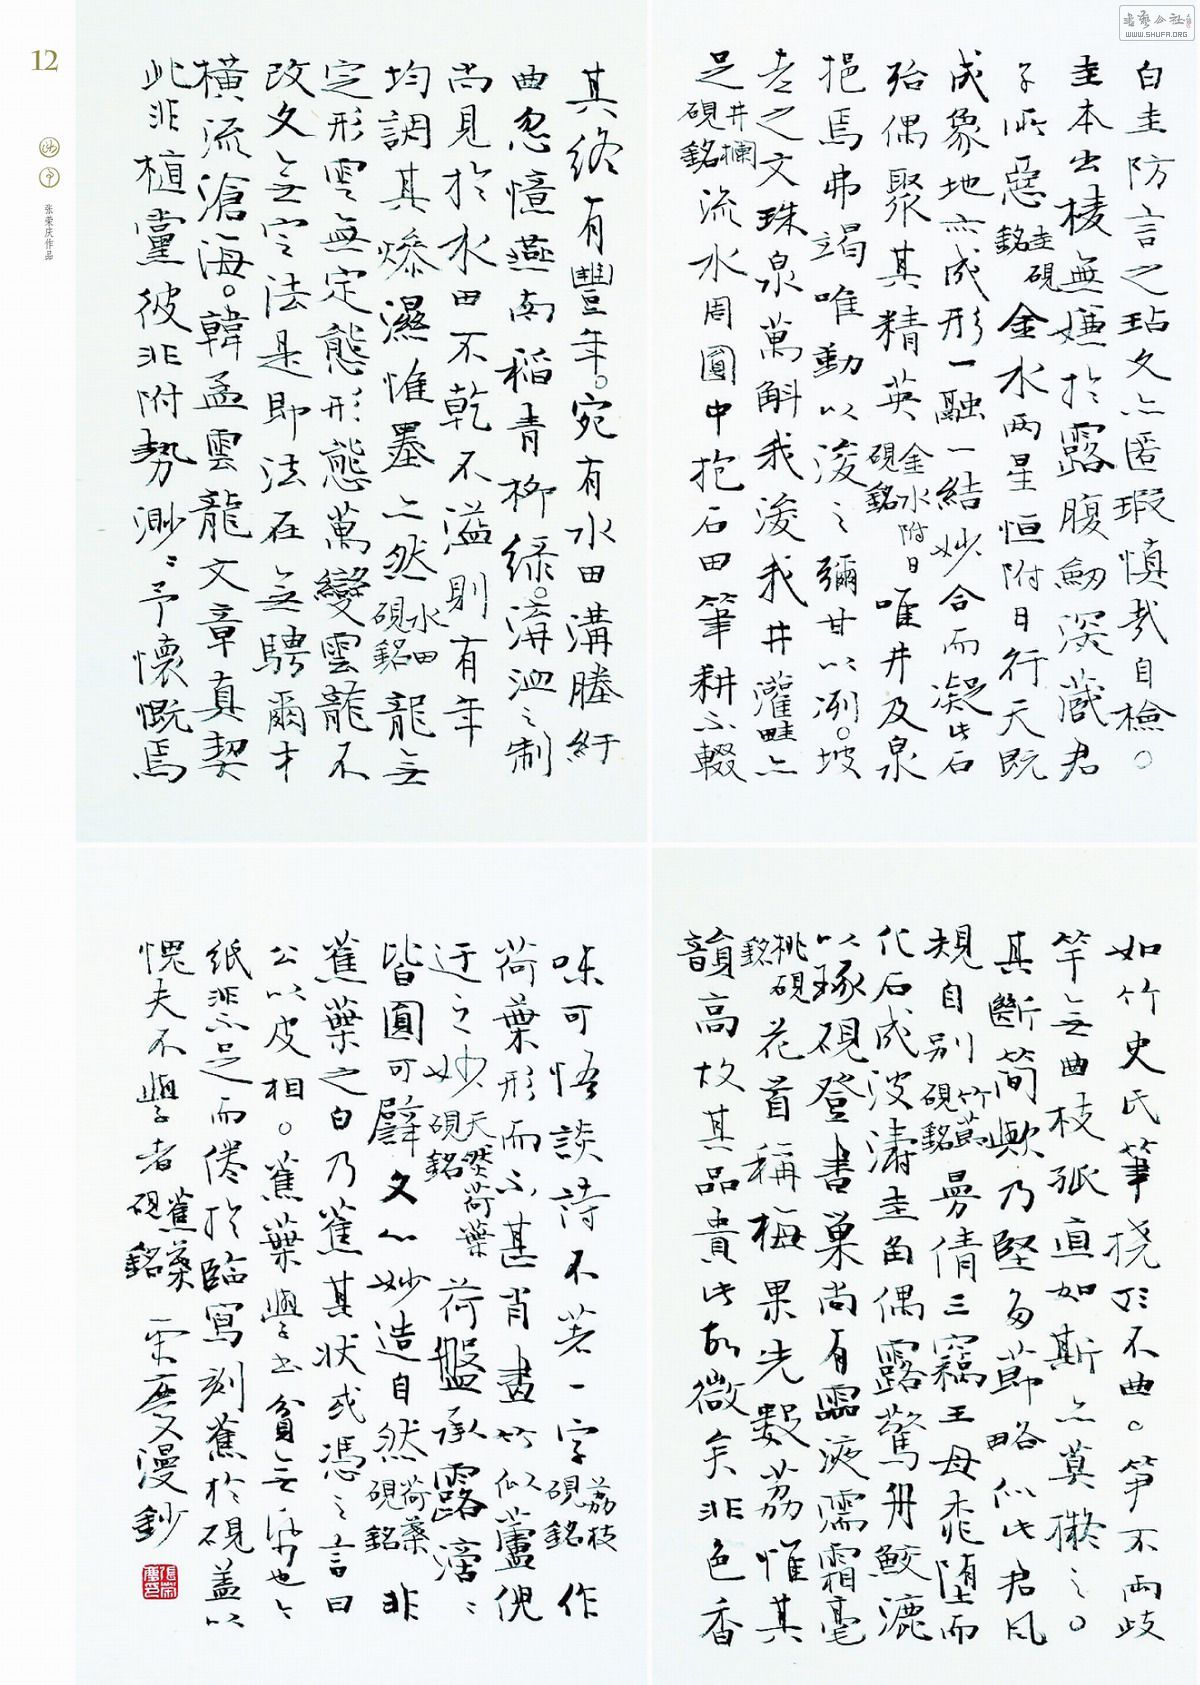 书艺公社
WWW.SHUFA.ORG
12
张荣庆作品
白圭防言之玷文亦匿瑕慎哉自檢
圭本出棱無嫌於露腹劒深藏君
子所惡圭硯銘金水兩星恒附日行天既
成象地亦成形一融一結妙合而凝此石
殆偶聚其精英金水附日硯銘唯井及泉
挹焉弗竭唯動以浚之彌甘以冽坡
老之文珠泉萬斛我浚我井灌畦亦
足井欄硯銘流水周圓中抱石田筆耕不輟
其終有豐年宛有水田溝塍紆
曲忽憶燕南稻青柳綠溝洫之制
尚見於水田不乾不溢則有年
均調其燥濕惟墨亦然水田硯銘龍無
定形雲無定態形態萬變雲龍不
改文無定法是即法在無騁爾才
橫流滄海韓孟雲龍文章真契
此非植黨彼非附勢渺渺予懷慨焉
如竹史氏筆撓於不曲筍不兩歧
竿無曲枝孤直如斯亦莫擬之
其斷簡歟乃堅多節略似此君風
規自別竹節硯銘曼倩三竊王母桃墮而
化石成波濤圭角偶露驚舟鮫漉
以琢硯登書巢尚有靈液濡霜毫
桃硯銘花首稱梅果先數荔惟其
韻高故其品貴此故微矣非色香
味可悟談詩不著一字荔枝硯銘作
荷葉形而不甚肖畫竹似蘆倪
迂之妙天然荷葉硯銘荷盤承露滴滴
皆圓可譬文心妙造自然荷葉硯銘非
蕉葉之白乃蕉其狀或馮之言曰
公以皮相蕉葉學書貧無紙也
紙非不足而倦於臨寫刻蕉於硯蓋以
愧夫不學者蕉葉硯銘榮慶漫鈔